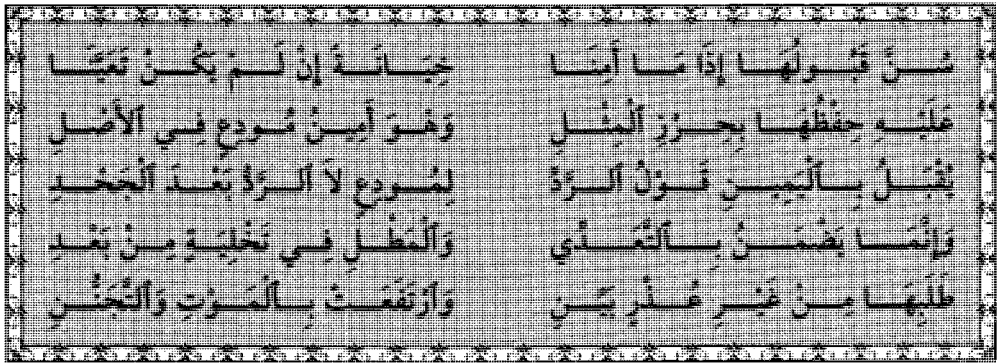 سُنَّ قَبُولُهَا إِذَا مَا أَمِنَا خِيَانَةً إِنْ لَمْ يَكُنْ تَعَيَّنَا
عَلَيْهِ حِفْظُهَا بِحِرْزِ ٱلْمِثْلِ وَهُوَ أَمِينٌ مُودِعٍ فِي ٱلأَصْلِ
يُقْبَلُ بِٱلْيَمِينِ قَوْلُ ٱلرَّدِّ لِمُودِعٍ لاَ ٱلرَّدُّ بَعْدَ ٱلْجَحْدِ
وَإِنَّمَا يَضْمَنُ بِٱلتَّعَدِّي وَٱلْمَطْلِ فِي تَخْلِيَةٍ مِنْ بَعْدِ
طَلَبِهَا مِنْ غَيْرِ عُذْرٍ بَيِّنِ وَٱرْتَفَعَتْ بِٱلْمَوْتِ وَٱلتَّجَنُّنِ